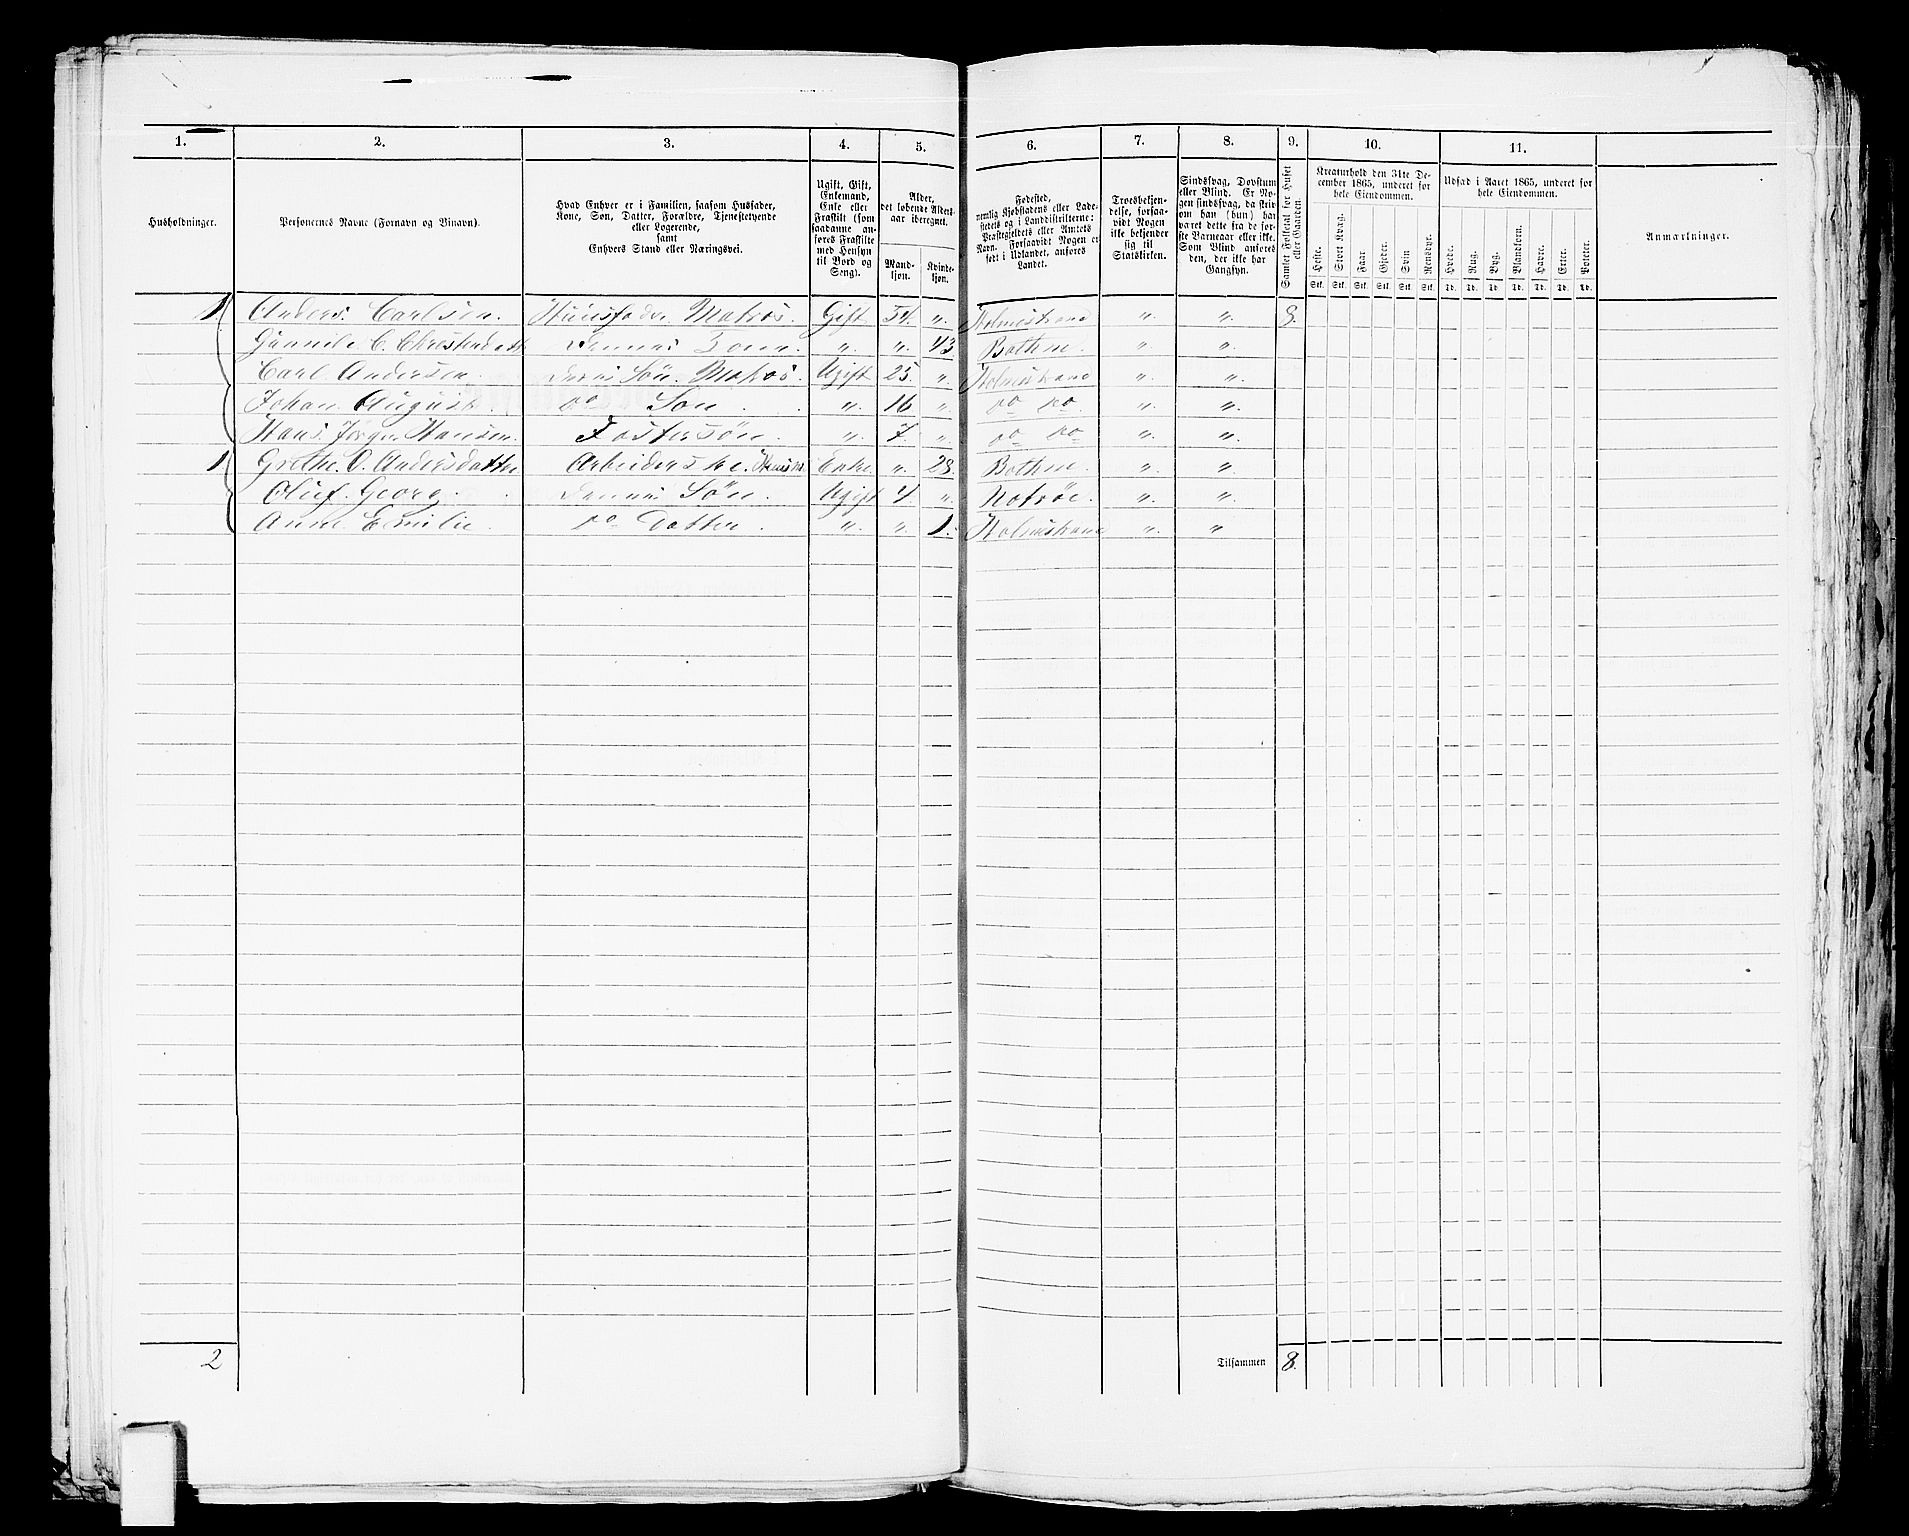 1. 2. 3. 4. 5. 6. 7. 8. 9. 10. 11.
Husholdninger.
Personernes Navne (Fornavn og Binavn).
Hvad Enhver er i Familien, saasom Husfader,
Kone, Søn, Datter, Forældre, Tjenestetyende
eller Logerende,
samt
Enhvers Stand eller Næringsvei.
Ugift, Gift,
Enkemand,
Enke eller
Fraskilt (som
saadanne an-
føres Fraskilte
med Hensyn
til Bord og
Seng).
Alder,
det løbende Alders-
aar iberegnet.
Mand-
kjøn.
Kvinde-
kjøn.
Fødested,
nemlig Kjøbstadens eller Lade-
stedets og i Landdistrikterne:
Præstegjeldets eller Amtets
Navn. Forsaavidt Nogen er
født i Udlandet, anføres
Landet.
Troesbekjen-
delse, forsaa-
vidt Nogen
ikke bekjender
sig til
Statskirken.
Sindssvag, Døvstum
eller Blind. Er No-
gen sindssvag, da skriv
om han (hun) har
været dette fra de før-
ste Barneaar eller ikke.
Som Blind anføres
den, der ikke har
Gangsyn.
Samlet Folketal for Huset
eller Gaarden.
Kreaturhold den 31te De-
cember 1865, underet for
hele Eiendommen.
Heste. Stort Kvæg. Faar Gjeder. Svin Rensdyr.
Stk. Stk. Stk. Stk. Stk. Stk.
Udsæd i Aaret 1865, underet for
hele Eiendommen.
Hvede. Rug. Byg. Blandkorn. Havre. Erter. Poteter.
Td. Td. Td. Td. Td. Td. Td.
Anmærkninger.
1 Anders. Carlsen. Huusfader Matros. Gift 54. „. Holmestrand „. „. 8.
Gunnild C. Christensdatt Dennes Kone. „. „. 43 Bothne. „. „.
Carl Andersen. Deres Søn. Matros. Ugift 25. „. Holmestrand „. „.
Johan August. do Søn „. 16 „. do do „. „.
Hans Jørgen Hansen. Fostersøn. „. 7. „. do do „. „.
1 Grethe. O. Andersdatter Arbeiderske. Enke „. 28. Bothne. „. „.
Oluf. Georg. Dennes Søn. Ugift 4. „. Notrøe. „. „.
Anne Emilie. do Datter. „. „. 1. Holmestrand „. „
2 Tilsammen 8.